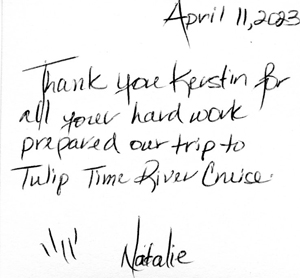 April 11, 2023
Thank you Kerstin for
all your hard work
prepared our trip to
Tulip Time River Cruise.
Natalie